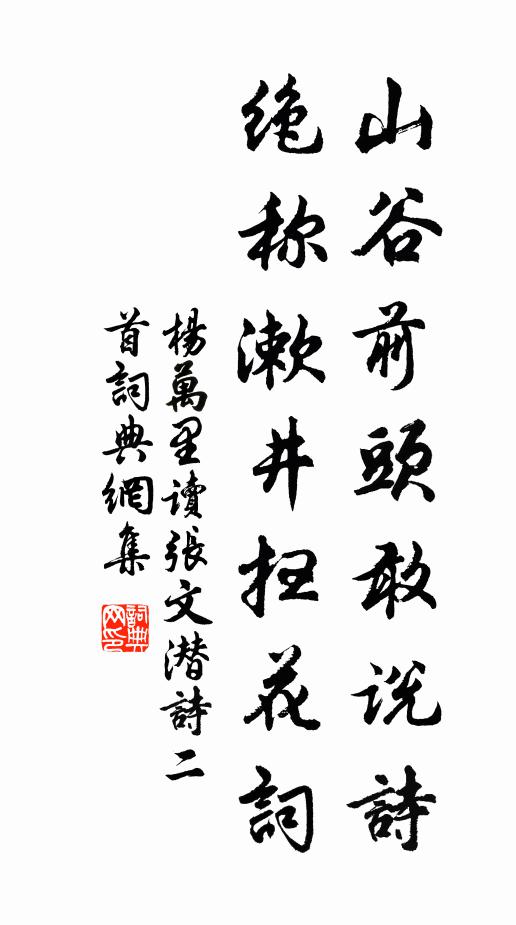 山谷前頭敢說詩
絶称漱井掃花詞
楊萬里讀張文潜詩二
首詞典網集
詞典网印